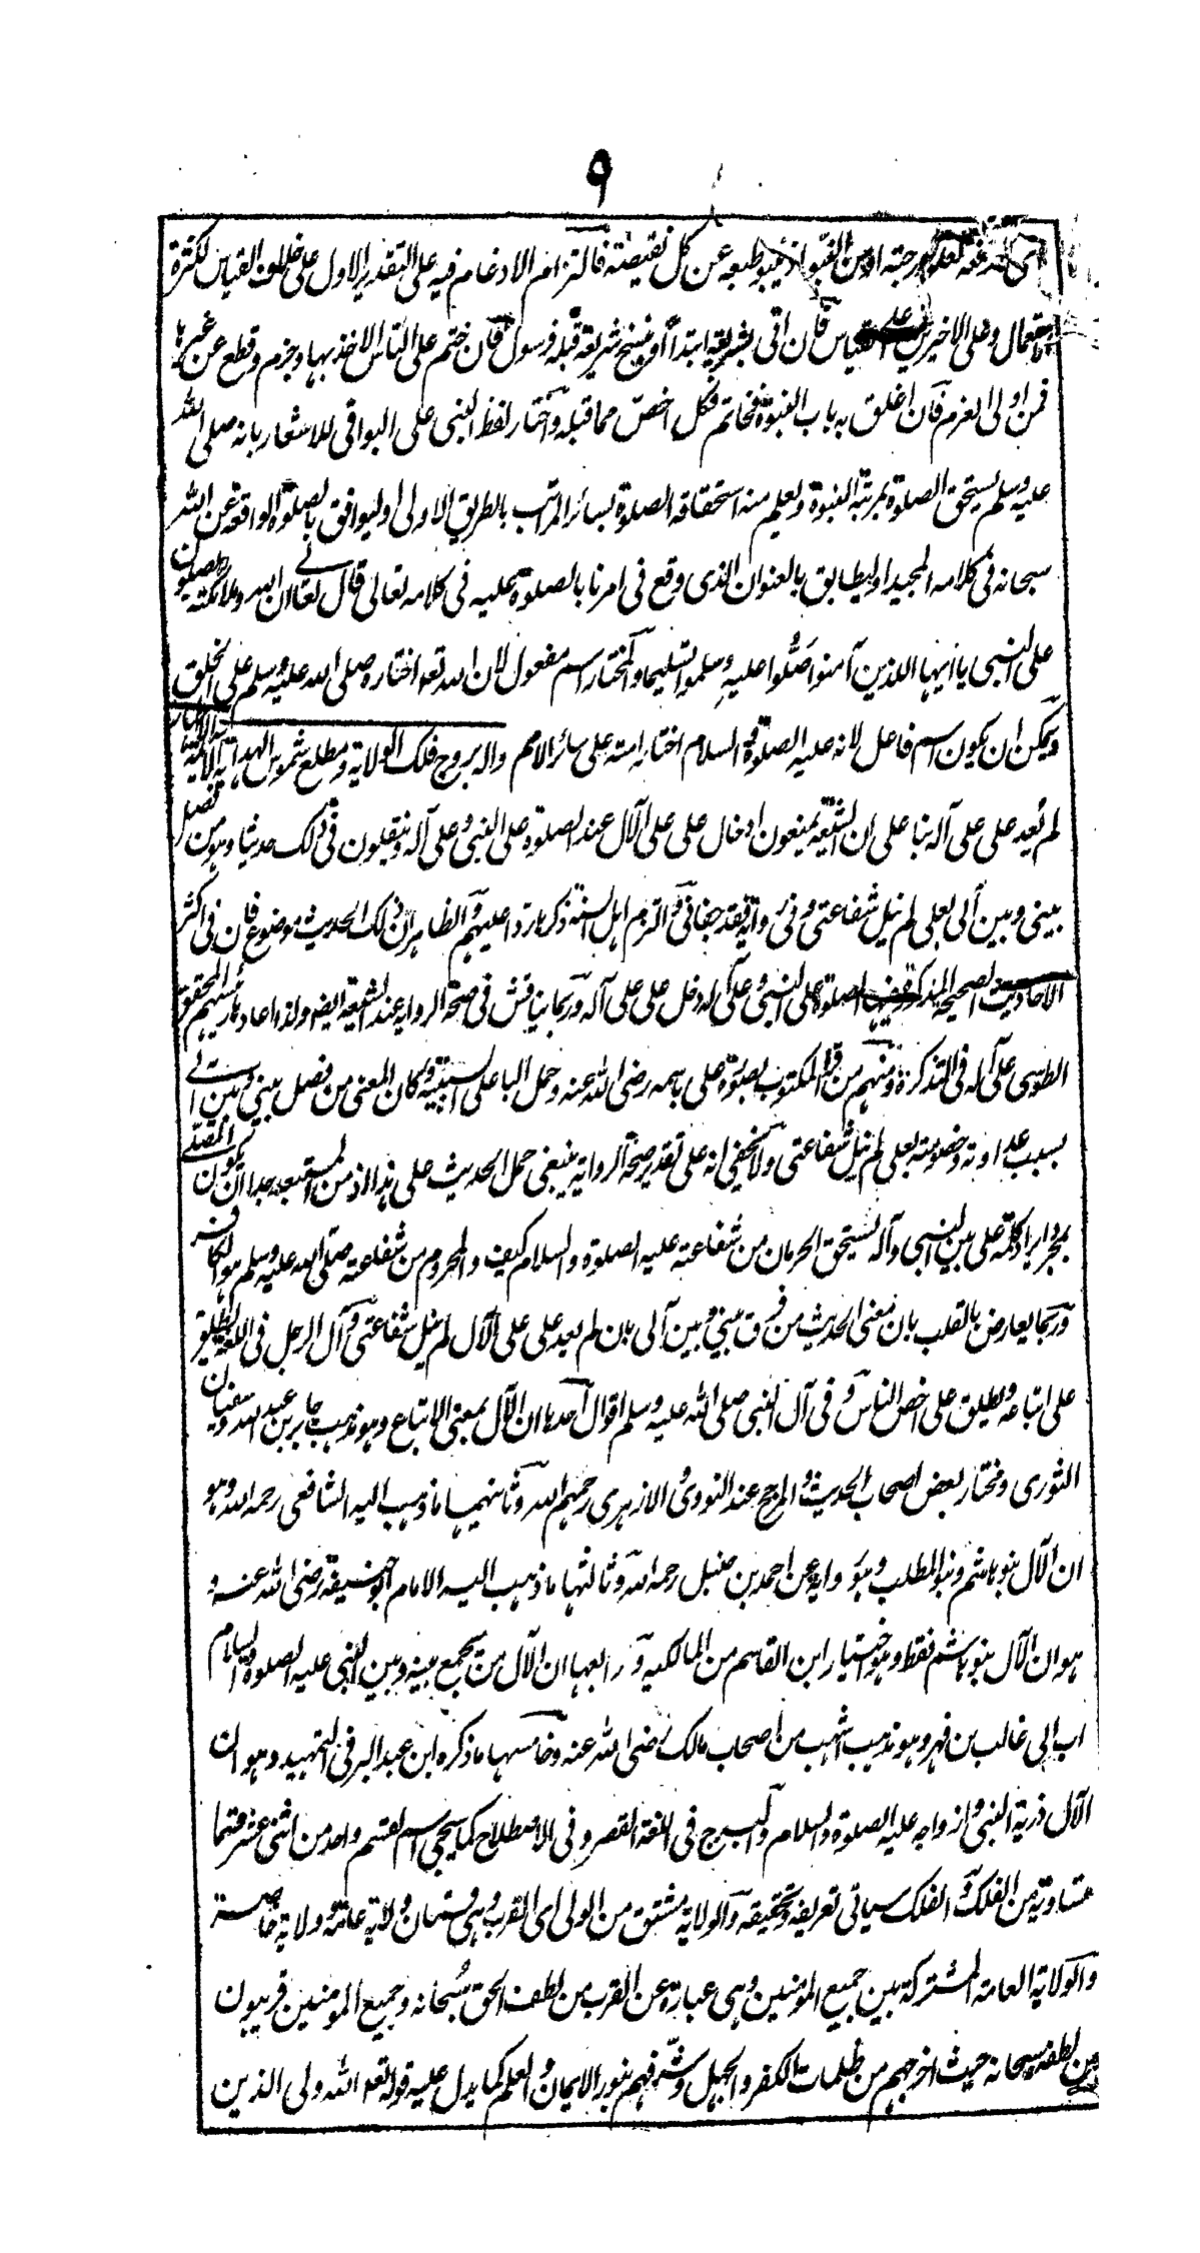 ٩
لعلو درجته او من النبو اذ ينبو طبعه عن كل نقيصة فالتزام الادغام فيه على التقدير الاول على خلاف القياس لكثرة
الاستعمال وعلى الاخير على القياس فان اتى بشريعة ابتداءً او بنسخ شريعة قبله فرسول فان ختم على الناس الاخذ بها وجزم وقطع عن غيرها
فمن اولى العزم فان اغلق به باب النبوة فخاتم فكل اخص مما قبله واختار لفظ النبى على البواقى للاشعار بانه صلى الله
عليه وسلم يستحق الصلوة بمرتبة النبوة وليعلم منه استحقاقه الصلوة لسائر المراتب بالطريق الاولى او ليوافق بالصلوة الواقعة عن الله
سبحانه فى كلامه المجيد او ليطابق بالعنوان الذى وقع فى امرنا بالصلوة عليه فى كلامه تعالى قال تعالى ان الله وملائكته يصلون
على النبى يا ايها الذين آمنوا صلوا عليه وسلموا تسليما والمختار اسم مفعول لان الله تعه اختاره صلى الله عليه وسلم على الخلق
ويمكن ان يكون اسم فاعل لانه عليه الصلوة والسلام اختار امته على سائر الامم واله بروج فلك الولاية ومطلع شموس الهداية
لم يعد على على آله بنا على ان الشيعة يمنعون ادخال على على الآل عند الصلوة على النبى وعلى آله وينقلون فى ذلك حديثا وهو من فصل
بينى وبين آلى بعلى لم ينل شفاعتى وفى رواية فقد جفانى والتزم اهل السنة ذكره ردا عليهم والظاهر ان ذلك الحديث موضوع فان فى اكثر
الاحاديث الصحيحة المذكور فيها صلوة على النبى وعلى آله دخل على على آله وربما يناقش فى صحة الرواية عند الشيعة ايضا ولذا اعاد رئيسهم المحقق
الطوسى على آله فى التذكرة ومنهم من قرأ المكتوب بصورة على باسمه رضى الله عنه وحمل البا على السببية وكان المعنى من فصل بينى وبين آلى
بسبب عداوته وخصومته بعلى لم ينل شفاعتى ولا يخفى انه على تقدير صحة الرواية ينبغى حمل الحديث على هذا اذ من المستبعد جدا ان يكون المصلى
بمجرد ايراد كلمة على بين النبى وآله يستحق الحرمان من شفاعته عليه الصلوة والسلام كيف والمحروم من شفاعته صلى الله عليه وسلم هو الكافر
وربما يعارض بالقلب بان معنى الحديث من فرق بينى وبين آلى بان لم يعد على على الآل لم ينل شفاعتى وآل الرجل فى اللغة يطلق
على اتباعه ويطلق على اخص الناس وفى آل النبى صلى الله عليه وسلم اقوال احدها ان الآل بمعنى الاتباع وهو مذهب جابر بن عبد الله وسفيان
الثورى ومختار بعض اصحاب الحديث والمرجح عند النووى والازهرى رحمهم الله وثانيها ما ذهب اليه الشافعى رحمه الله وهو
ان الآل بنو هاشم وبنو المطلب وهو رواية عن احمد بن حنبل رحمه الله وثالثها ما ذهب اليه الامام ابو حنيفة رضى الله عنه و
هو ان الآل بنو هاشم فقط وهو اختيار ابن القاسم من المالكيه ورابعها ان الآل من يجمع بينه وبين النبى عليه الصلوة والسلام
اب الى غالب بن فهر وهو مذهب اشهب من اصحاب مالك رضى الله عنه وخامسها ما ذكره ابن عبد البر فى التمهيد وهو ان
الآل ذرية النبى وازواجه عليه الصلوة والسلام والبرج فى اللغة القصر وفى الاصطلاح كما سيجئ اسم لقسم واحد من اثنى عشر قسما
متساوية من الفلك والفلك سياتى تعريفه وتحقيقه والولاية مشتق من الولى اى القرب وهى قسمان ولاية عامة وولاية خاصة
والولاية العامة المشتركة بين جميع المؤمنين وهى عبارة عن القرب من لطف الحق سبحانه وجميع المؤمنين قريبون
من لطفه سبحانه حيث اخرجهم من ظلمات الكفر والجهل وشرفهم بنور الايمان والعلم كما يدل عليه قوله تعه الله ولى الذين